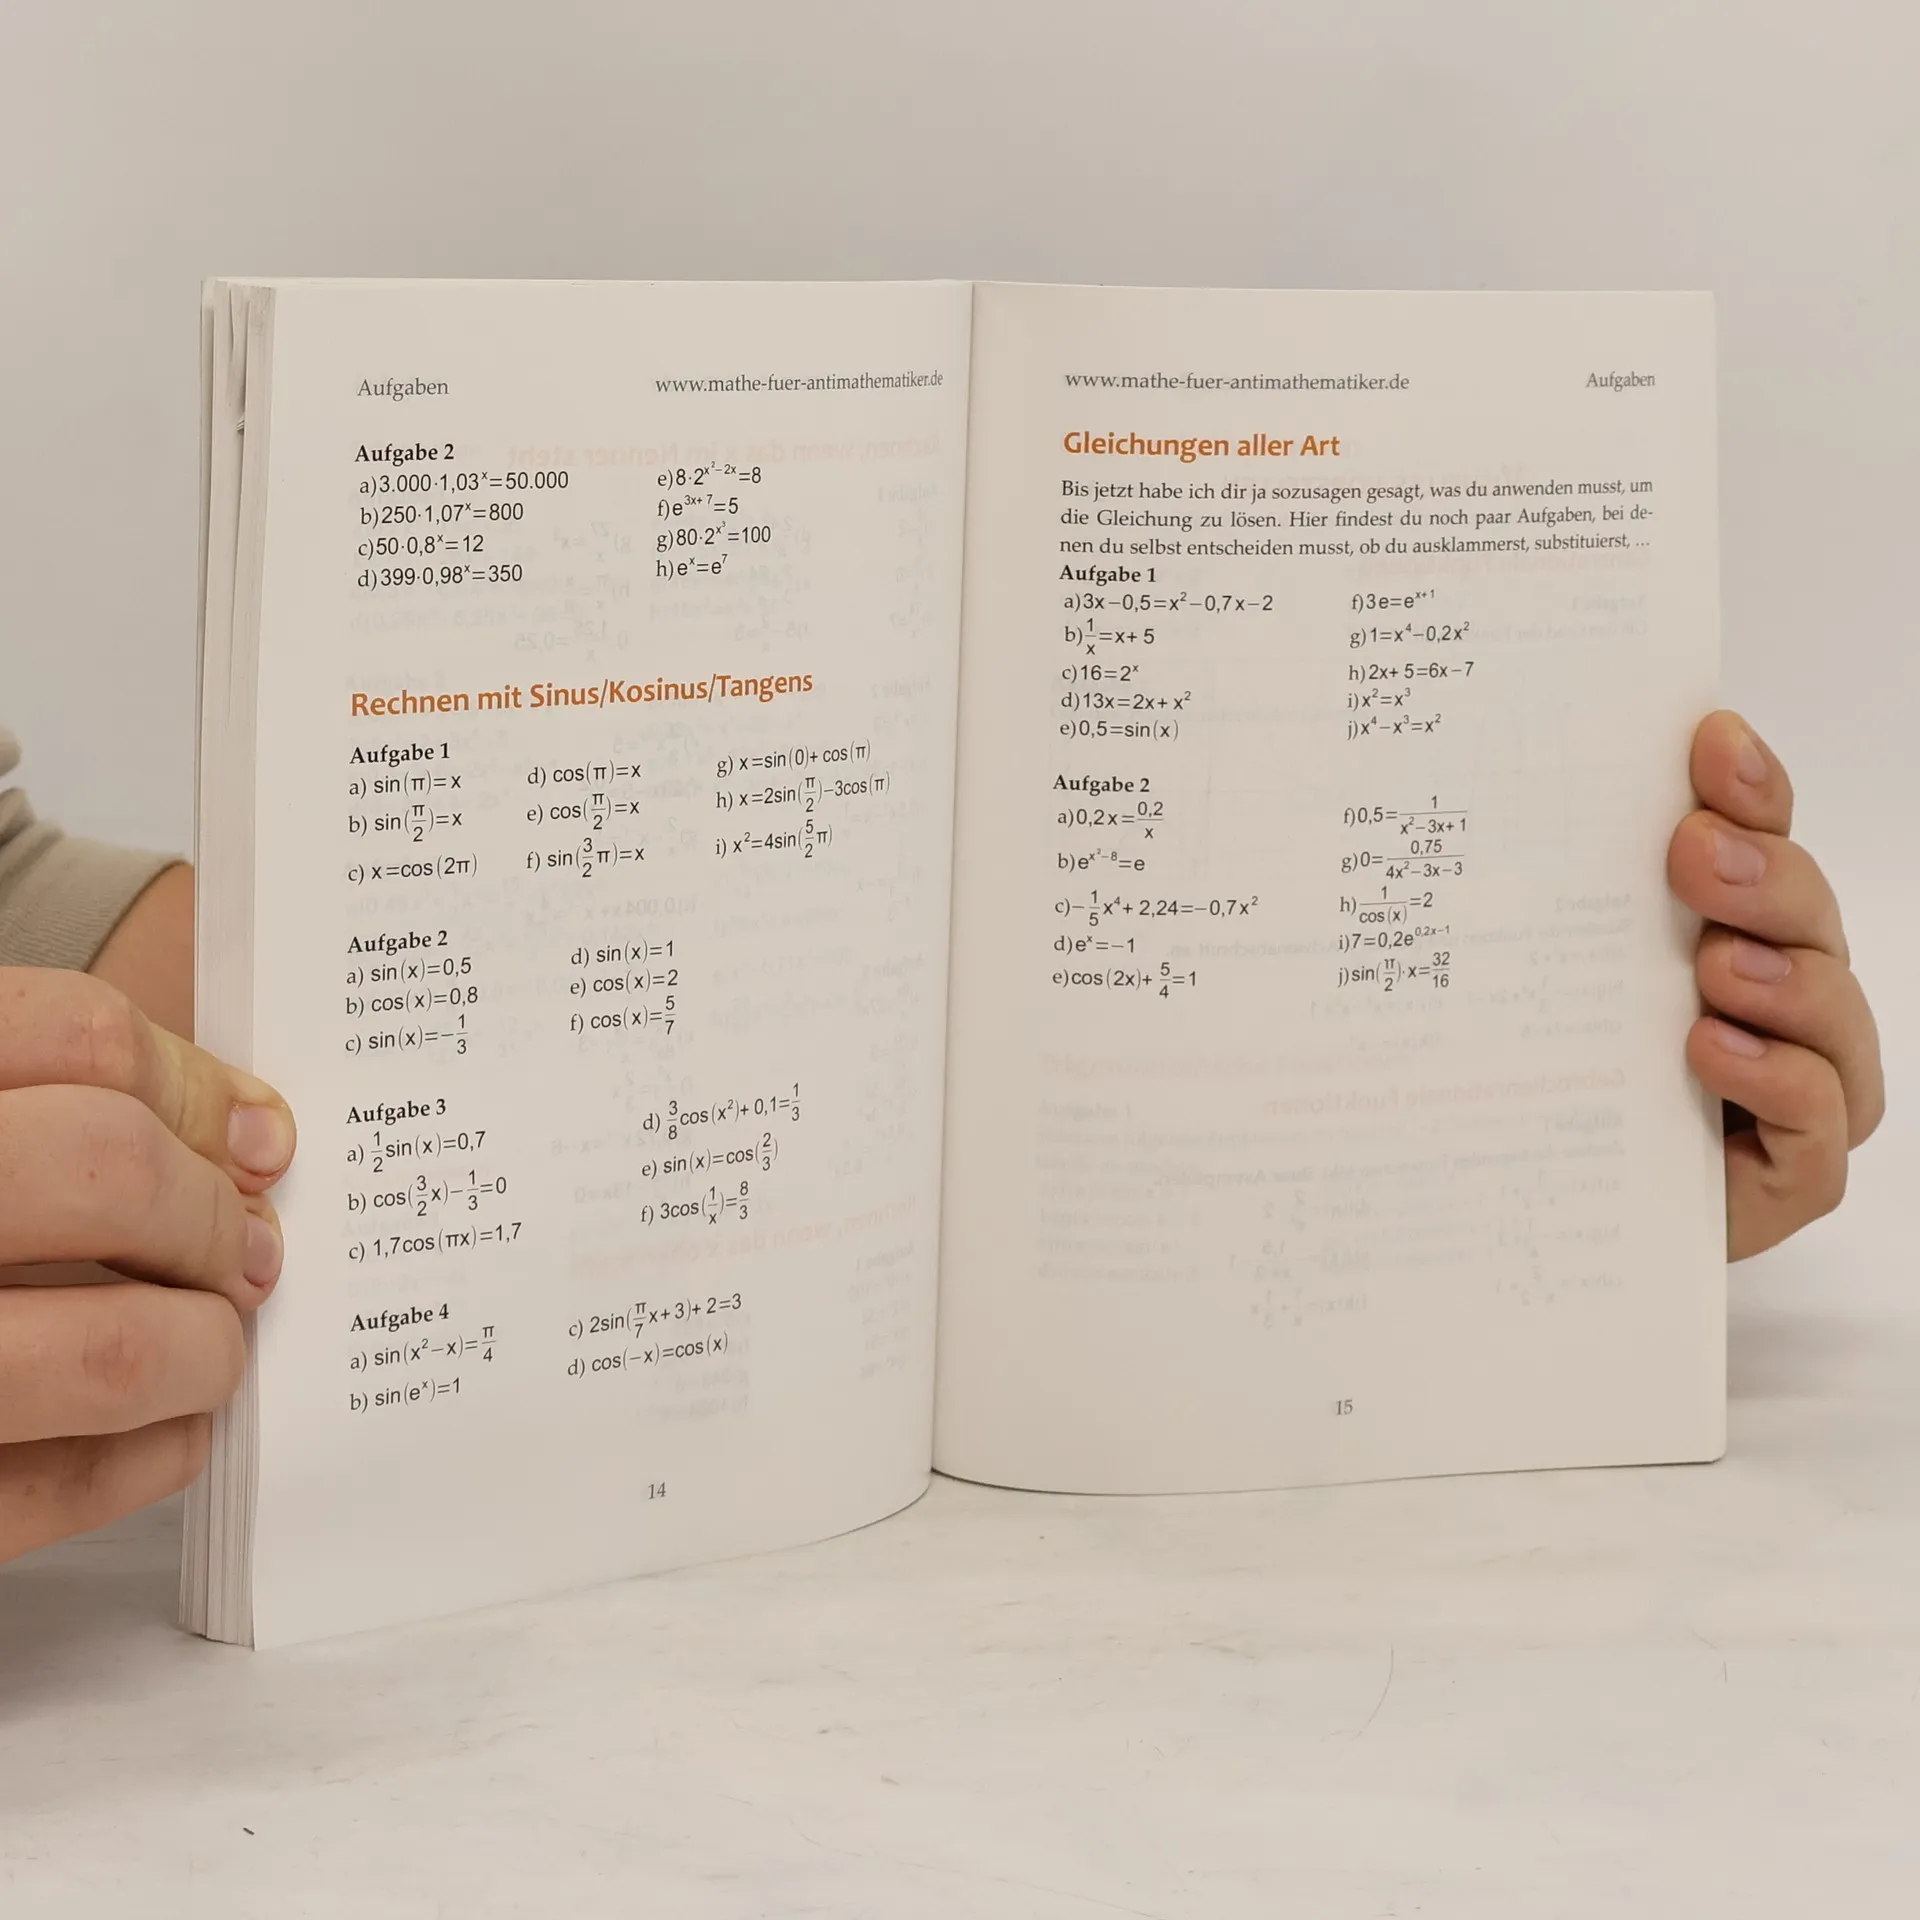 Aufgaben www.mathe-fuer-antimathematiker.de
Aufgabe 2
a)3.000·1,03ˣ=50.000
b)250·1,07ˣ=800
c)50·0,8ˣ=12
d)399·0,98ˣ=350
e)8·2^(x²−2x)=8
f)e^(3x+7)=5
g)80·2^(x³)=100
h)eˣ=e⁷
Rechnen mit Sinus/Kosinus/Tangens
Aufgabe 1
a) sin(π)=x
b) sin(π/2)=x
c) x=cos(2π)
d) cos(π)=x
e) cos(π/2)=x
f) sin(3/2π)=x
g) x=sin(0)+cos(π)
h) x=2sin(π/2)−3cos(π)
i) x²=4sin(5/2π)
Aufgabe 2
a) sin(x)=0,5
b) cos(x)=0,8
c) sin(x)=−1/3
d) sin(x)=1
e) cos(x)=2
f) cos(x)=5/7
Aufgabe 3
a) 1/2sin(x)=0,7
b) cos(3/2x)−1/3=0
c) 1,7cos(πx)=1,7
d) 3/8cos(x²)+0,1=1/3
e) sin(x)=cos(2/3)
f) 3cos(1/x)=8/3
Aufgabe 4
a) sin(x²−x)=π/4
b) sin(eˣ)=1
c) 2sin(π/7x+3)+2=3
d) cos(−x)=cos(x)
14
www.mathe-fuer-antimathematiker.de Aufgaben
Gleichungen aller Art
Bis jetzt habe ich dir ja sozusagen gesagt, was du anwenden musst, um
die Gleichung zu lösen. Hier findest du noch paar Aufgaben, bei de-
nen du selbst entscheiden musst, ob du ausklammerst, substituierst, ...
Aufgabe 1
a)3x−0,5=x²−0,7x−2
b)1/x=x+5
c)16=2ˣ
d)13x=2x+x²
e)0,5=sin(x)
f)3e=e^(x+1)
g)1=x⁴−0,2x²
h)2x+5=6x−7
i)x²=x³
j)x⁴−x³=x²
Aufgabe 2
a)0,2x=0,2/x
b)e^(x²−8)=e
c)−1/5x⁴+2,24=−0,7x²
d)eˣ=−1
e)cos(2x)+5/4=1
f)0,5=1/(x²−3x+1)
g)0=0,75/(4x²−3x−3)
h)1/cos(x)=2
i)7=0,2e^(0,2x−1)
j)sin(π/2)·x=32/16
15